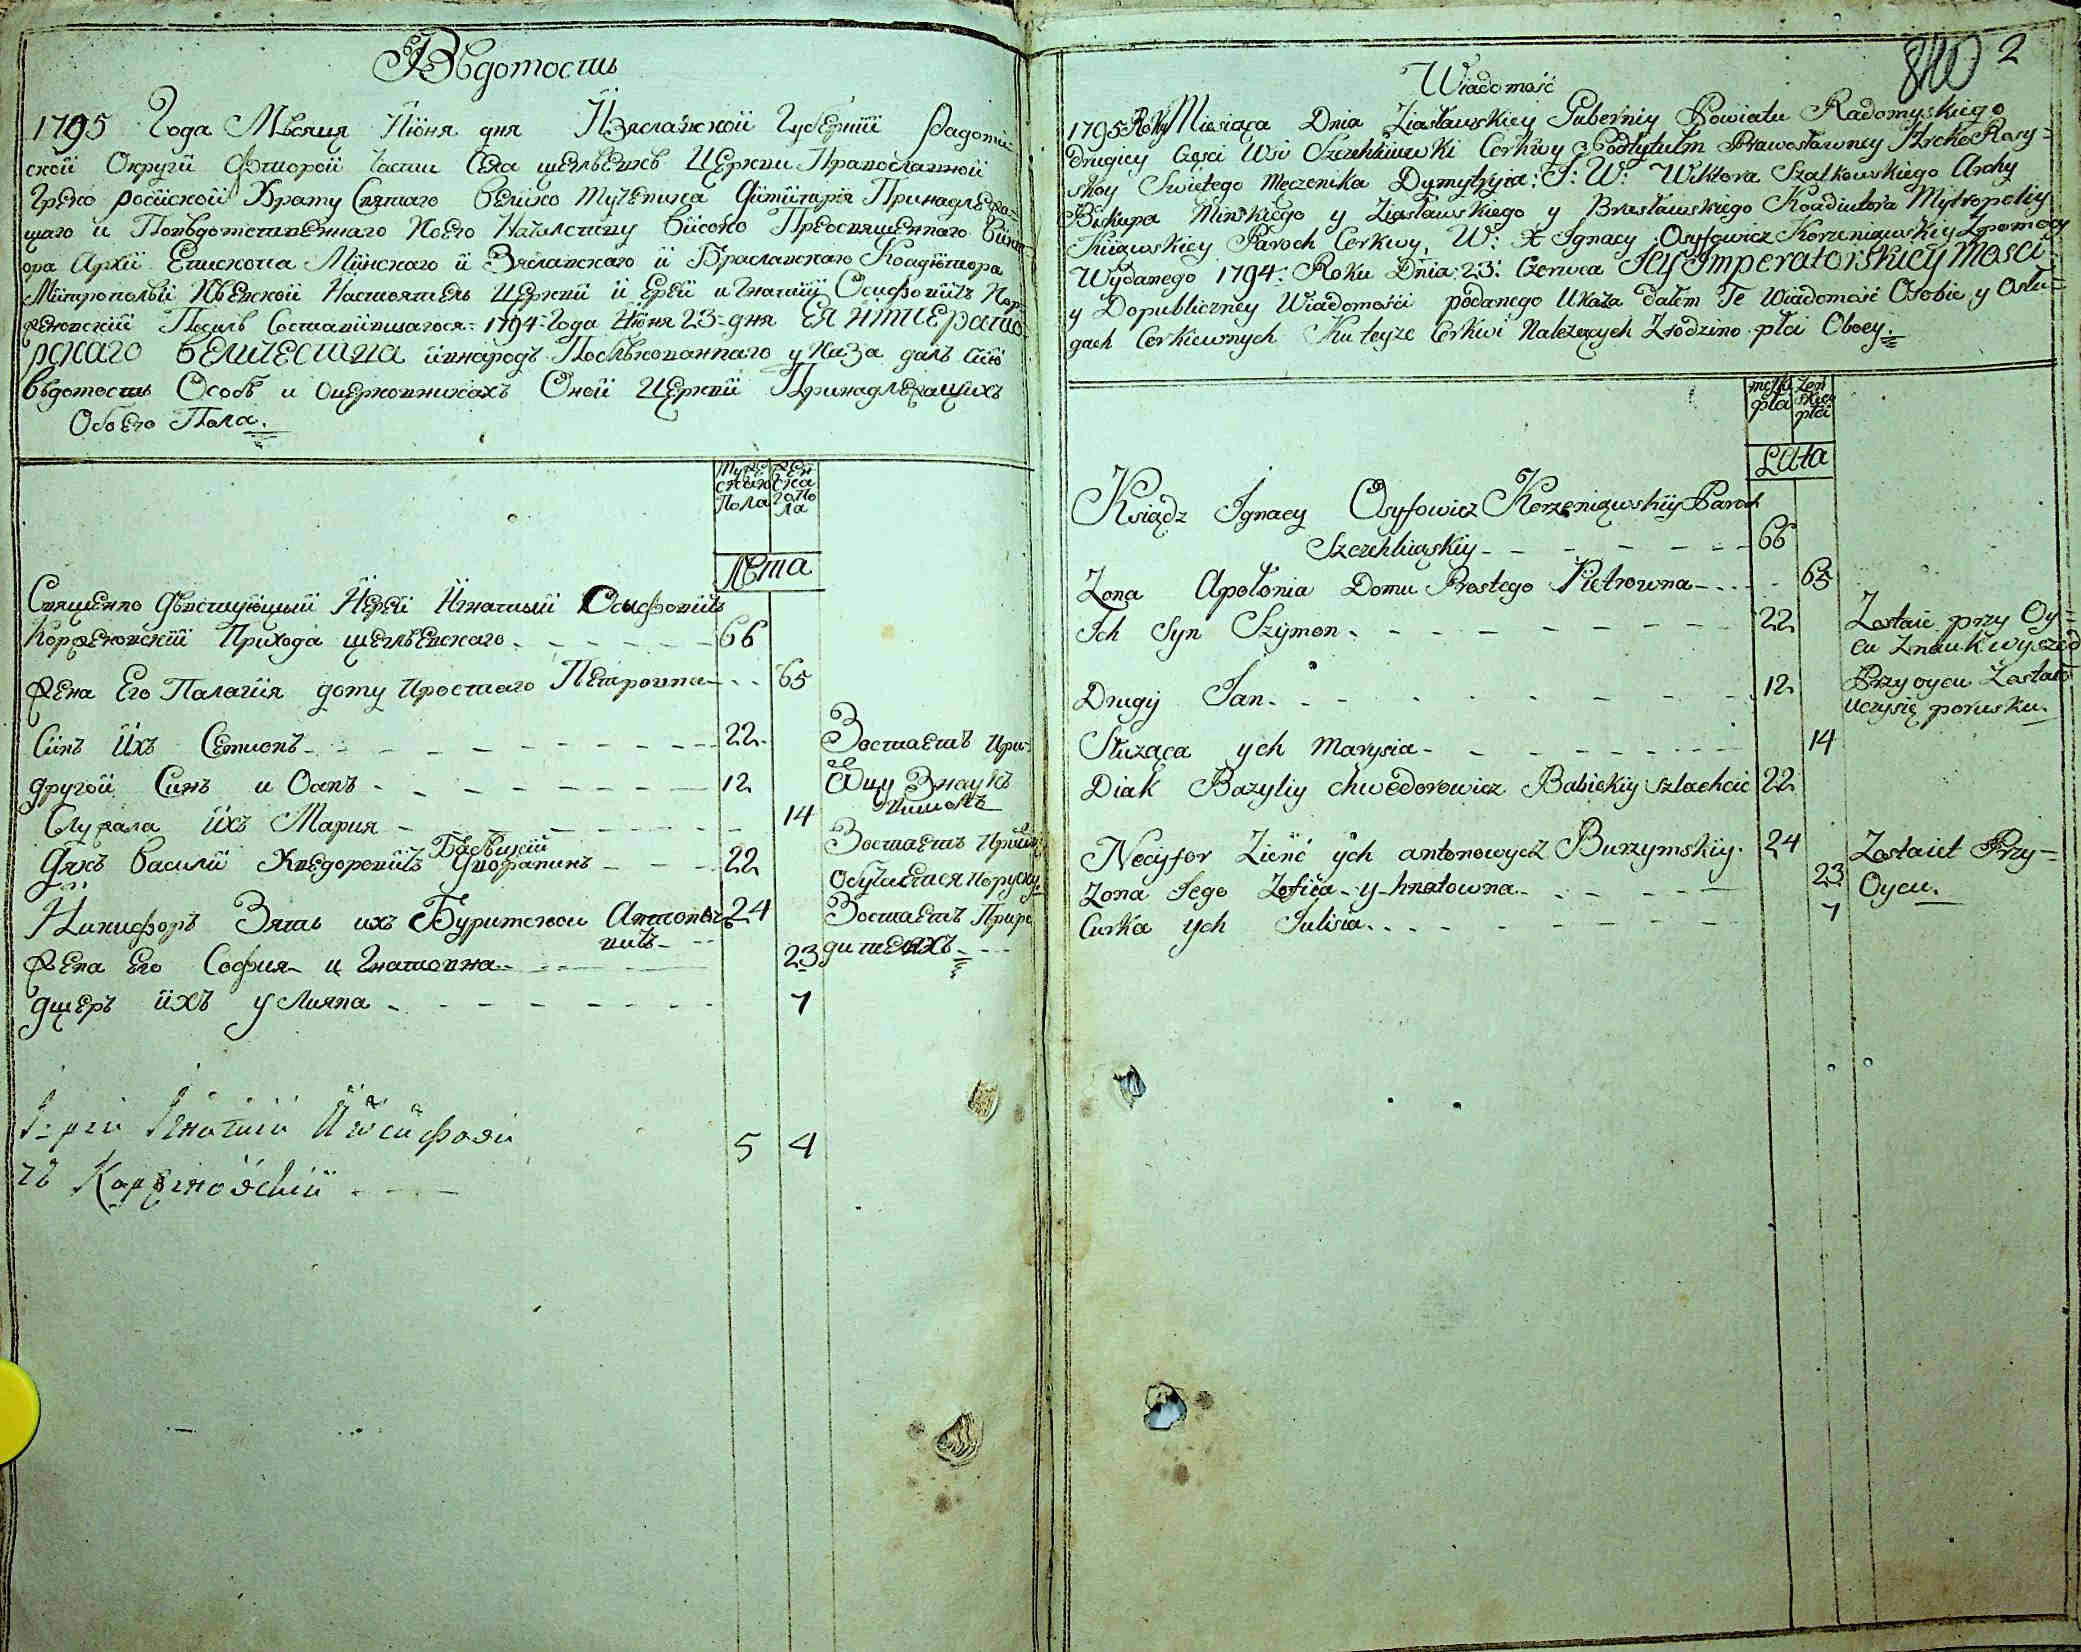 Вѣдомость
1795 Года Мѣсяця Июня дня Изяславской Губернии Радоми-
ской Округи Фторой Части Села Церкви Православной
Греко Российской Храму Святаго Велико Мученика Димитрия Принадлежа-
щаго и Високо Преосвященнаго Викт
ора Архи Епископа Минскаго и Зяславскаго и Браславскаго Коадютора
Митрополѣи Кѣевской Настоятель Церкви и Ерей Игнатий Осифовичъ Кор-
женовский 1794 Года Июня 23 дня ЕЯ ИМПЕРАТО
РСКАГО ВЕЛИЧЕСТВА указа далъ сию
Вѣдомость Особѣ и оцерковникахъ Оной Церкви Принадлежащихъ
Обоего Пола.
муже жен
скаго ска
Пола го По
ла
Лѣта
Священно дѣйствующый Иерей Игнатый Осифовичъ
Корженовский Прихода - - - 66
Жена Его Палагия дому простаго Петровна - - - 65
Синъ Ихъ Семионъ - - - 22
Зостаетъ при
другой Синъ и Оанъ - - - 12
Оцу Знаукъ
Служала ихъ Мария - - - 14
Бабѣцкий
Зостаетъ
Дякъ Василий Хведоровичъ Дворанинъ - - - 22
Обучается поруску
Никифоръ Зять ихъ Буримской Антоно 24
вичъ
Зостаетъ Приро
дителяхъ
Жена его София и Гнатовна - - - 23
Дщерь ихъ Улияна - - - 1
5 4
Иерей Игнатий Иосифови
чъ Корженовский
840 2
Wiadomość
1795 Roku Miesiąca Dnia Ziasławskiey Guberniy Powiatu Radomyskiego
drugiey Częsci Wsi Cerkwy Podtytułm Prawosławney Hreko Rosy-
skoy Swiętego Męczenika Dymytryia: J: W: Wiktora Szatkowskiego Archy
Biskupa Minskiego y Ziasławskiego y Brasławskiego Koadiutora Mytropoliy
Kiiewskiey Paroch Cerkwy, W: X Ignacy Osyfowicz Korzeniewskiy Zpomocy
Wydanego 1794: Roku Dnia: 23: Czerwca Iey Imperatorskiey Mosci
y Dopubliczney Wiadomości podanego Ukaza dałem Te Wiadomość Osobie y Osłu-
gach Cerkiewnych Ku teyze Cerkwi Nalezących Zrodzino płci Oboey.
męsk żeń
płci skiey
płci
Lata
Ksiądz Ignacy Osyfowicz Korzeniewskiy Paroch
- - - 66
Zona Apołonia Domu Prostego Pietrowna - - - 65
Ich Syn Szymon - - - 22
Zostaie przy Oy-
cu Znauk wyszed
Drugy Jan - - - 12
Przy oycu Zostaie
uczysię porusku
Słuząca ych Marysia - - - 14
Diak Bazyliy Chwedorowicz Babickiy szlachcic 22
Necyfor Zienć ych antonowycz Burzymskiy 24
Zostaiet Przy-
Oycu.
Zona Iego Zofiia y hnatowna - - - 23
Curka ych Julisia - - - 1